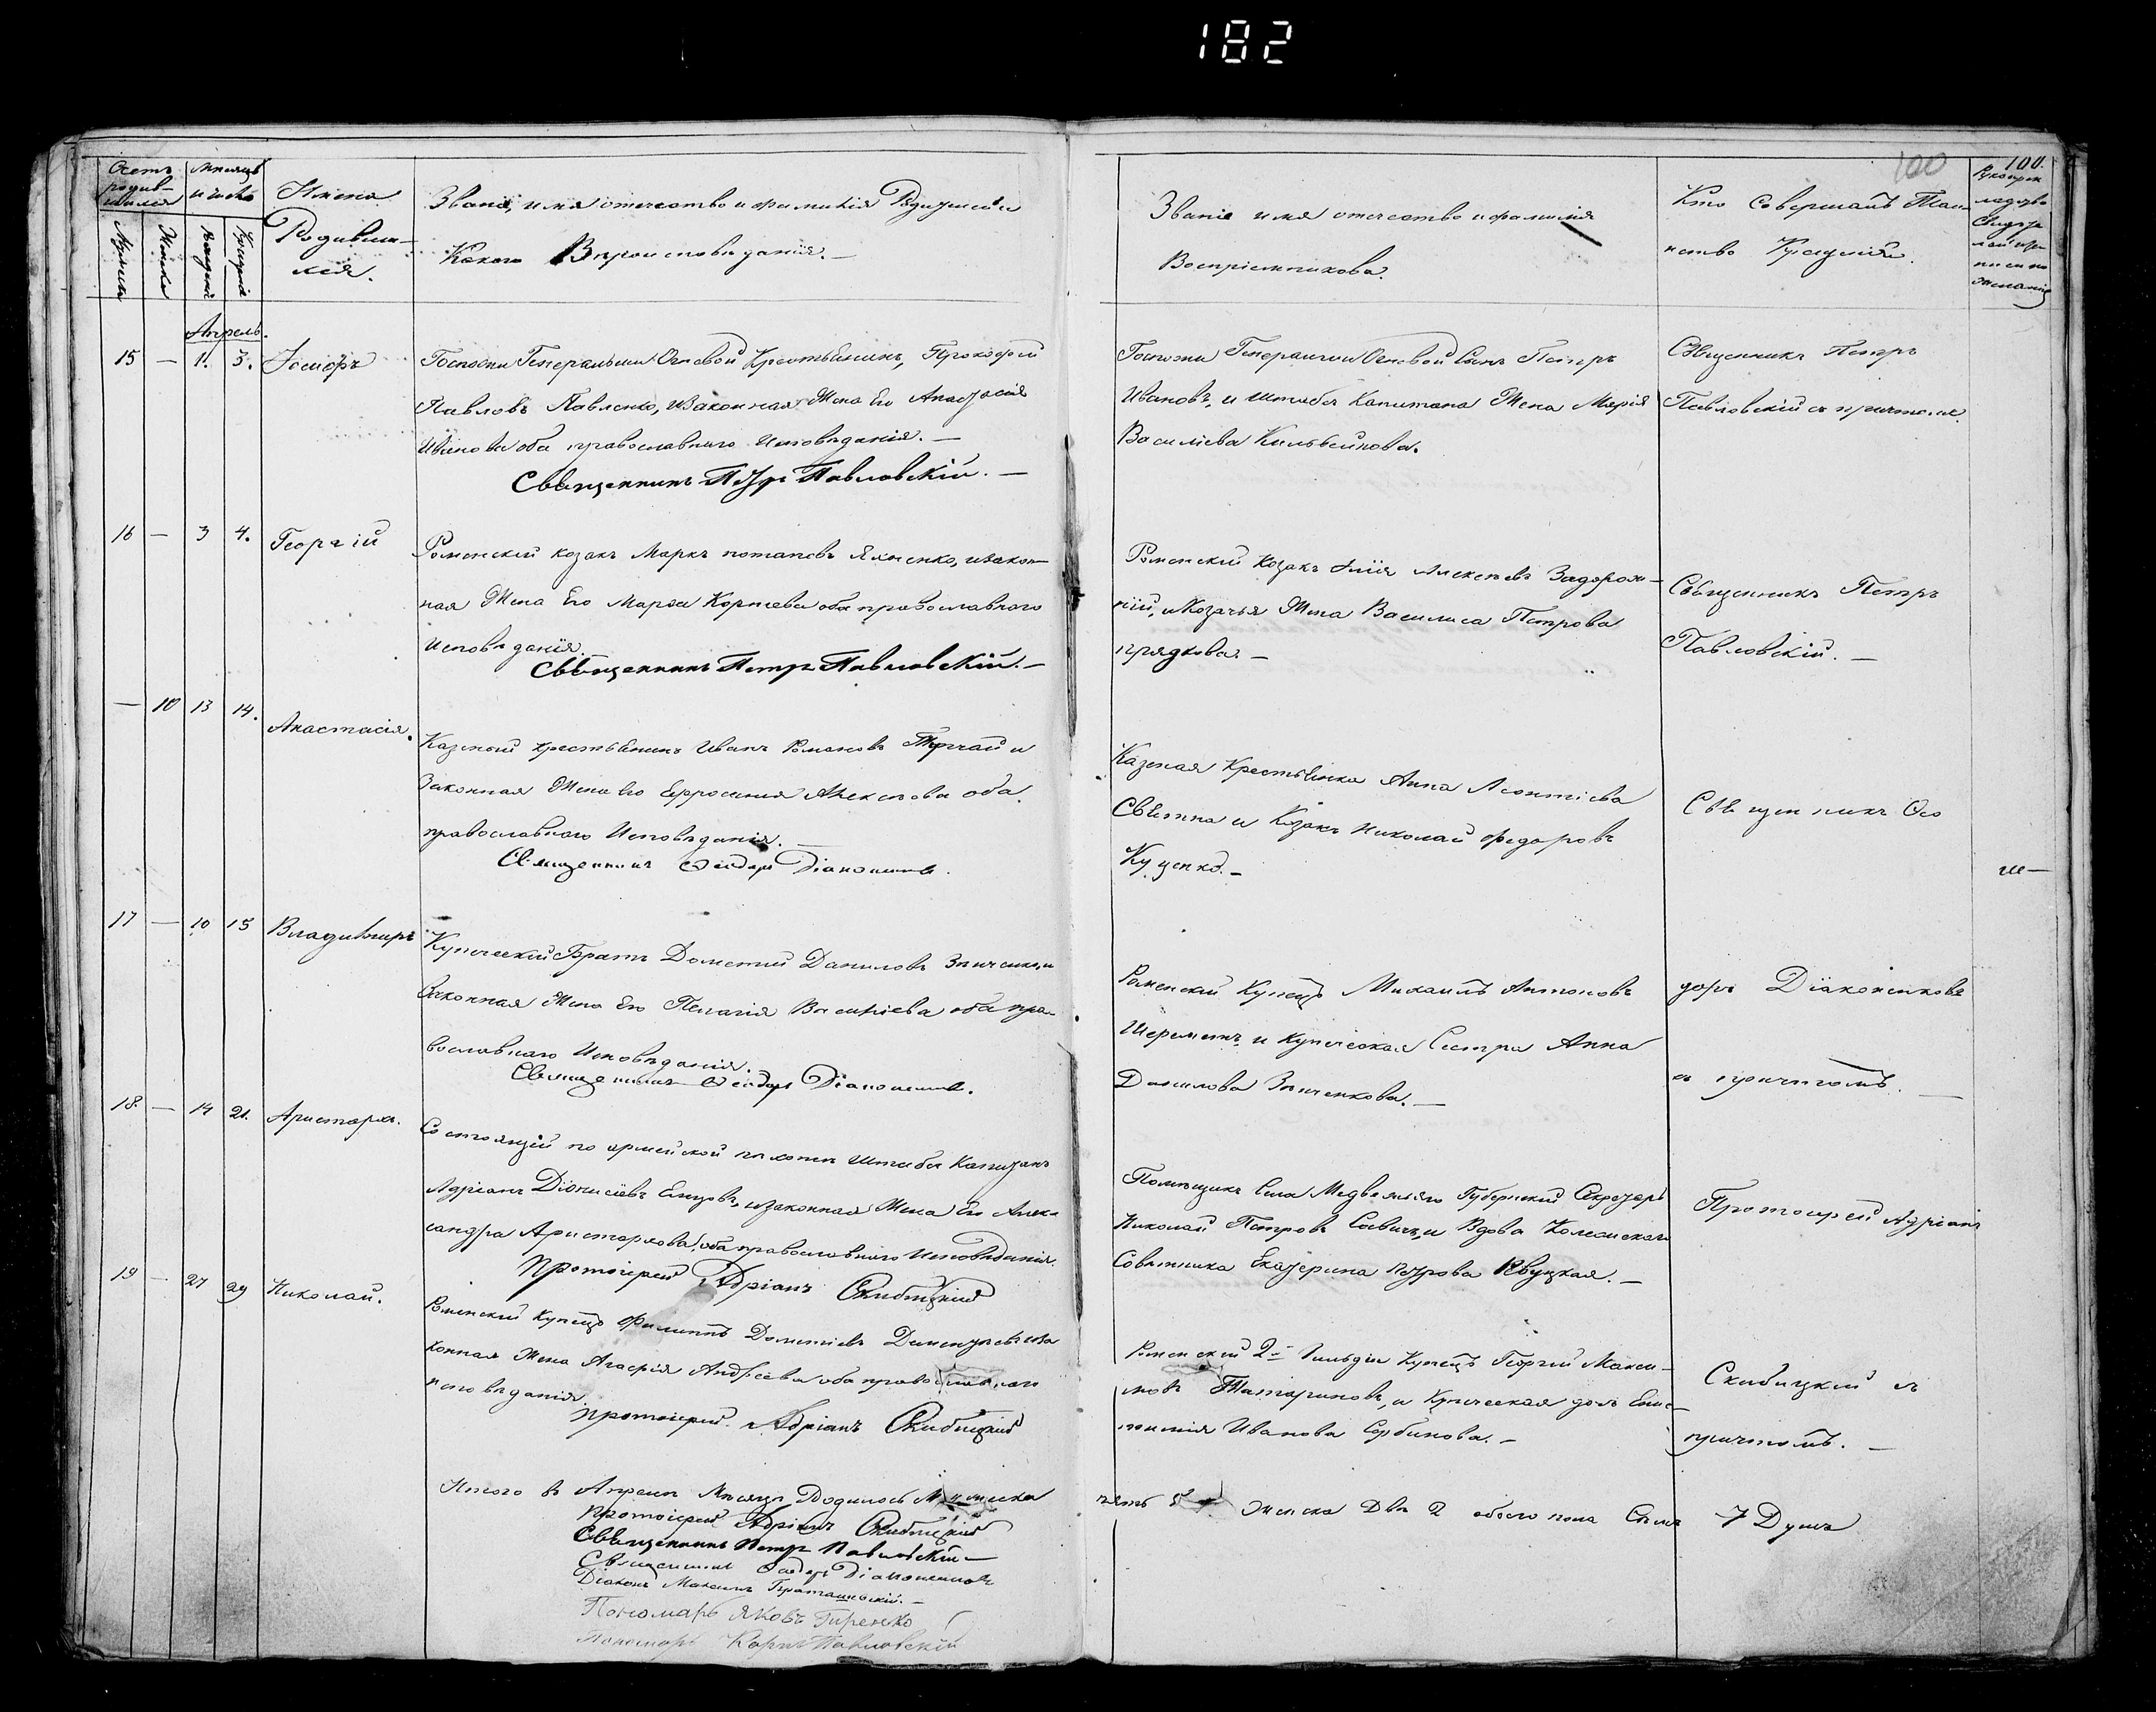 182
100
100.
Счетъ родив-шихся
Мѣсяцъ и число
Имена Родивши-хся.
Званіе, имя отечество и фамилія Родителей и
Какого Вѣроисповѣданія. —
Мужеска
Женска
Рожденія
Крещенія
Званіе имя отечество и фамилія
Воспріемниковъ.
Кто Совершалъ Таи-
нство Крещенія.
Апрель.
15 — 1. 3. Іосифъ
Госпожи Генеральши Крестьянинъ, Прокофій
Павловъ Павленко, и законная Жена Его Анастасія
Иванова оба православнаго Исповѣданія. —
Священникъ Петръ Павловскій. —
Госпожи Генеральши Сынъ Петръ
Ивановъ, и Штабсъ Капитана Жена Марія
Василіева
Священникъ Петръ
Павловскій съ причтомъ.
16 — 3 4. Георгій
Роменскій козакъ Маркъ Потаповъ Яхненко, и закон-
ная Жена Его Марѳа Корнѣева оба православнаго
Исповѣданія.
Священникъ Петръ Павловскій. —
Роменскій Козакъ Илія Алексѣевъ Задорож-
ній, и Козачья Жена Василиса Петрова
Прядкова. —
Священникъ Петръ
Павловскій. —
— 10 13 14. Анастасія.
Казеный крестьянинъ Иванъ Романовъ и
Законная Жена его Ефросинія Алексѣева оба
православнаго Исповѣданія. —
Священникъ Ѳеодоръ Діаконенковъ.
Казеная Крестьянка Анна Леонтіева
и Козакъ Николай Федоровъ
Куценко. —
Священникъ Ѳео
17 — 10 15 Владиміръ
Купеческій Братъ Дометій Даниловъ Зинченко, и
Законная Жена Его Пелагія Василіева оба пра-
вославнаго Исповѣданія.
Священникъ Ѳеодоръ Діаконенковъ.
Роменскій Купецъ Михаилъ Антоновъ
Шереметъ и Купеческая Сестра Анна
Данилова Зинченкова. —
доръ Діаконенковъ
съ причтомъ. —
18. — 14 21. Аристархъ.
Состоящій по армейской пѣхотѣ Штабсъ Капитанъ
Адріанъ Діонисіевъ и законная Жена Его Алек-
сандра Аристархова, оба православнаго Исповѣданія.
Протоіерей Адріанъ Скибицкій
Помѣщикъ Села Медвежяго Губернскій Секретарь
Николай Петровъ Савичъ, и Вдова Колежскаго
Совѣтника Екатерина Петрова
Протоіерей Адріанъ
19 — 27 29 Николай.
Роменскій Купецъ Филиппъ Дометіевъ и за
конная Жена Агафія Андреева оба православнаго
исповѣданія.
Протоіерей Адріанъ Скибицкій
Роменскій 2й Гильдіи Купецъ Георгій Макси-
мовъ Татариновъ, и Купеческая дочь
Иванова Сорбинова. —
Скибицкій съ
причтомъ. —
Итого въ Апрелѣ Мѣсяцѣ Родилось Мужеска
пять 5 женска Двѣ 2 обоего пола Семь 7 Душъ
Протоіерей Адріанъ Скибицкій
Священникъ Петръ Павловскій —
Священникъ Ѳеодоръ Діаконенковъ
Діаконъ Максимъ
Пономарь Яковъ Гиренко
Пономарь Павловскій